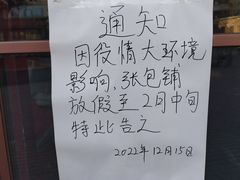 通知
因役情大环境
影响,张包铺
放假至2月中旬
特此告之
2022年12月15日